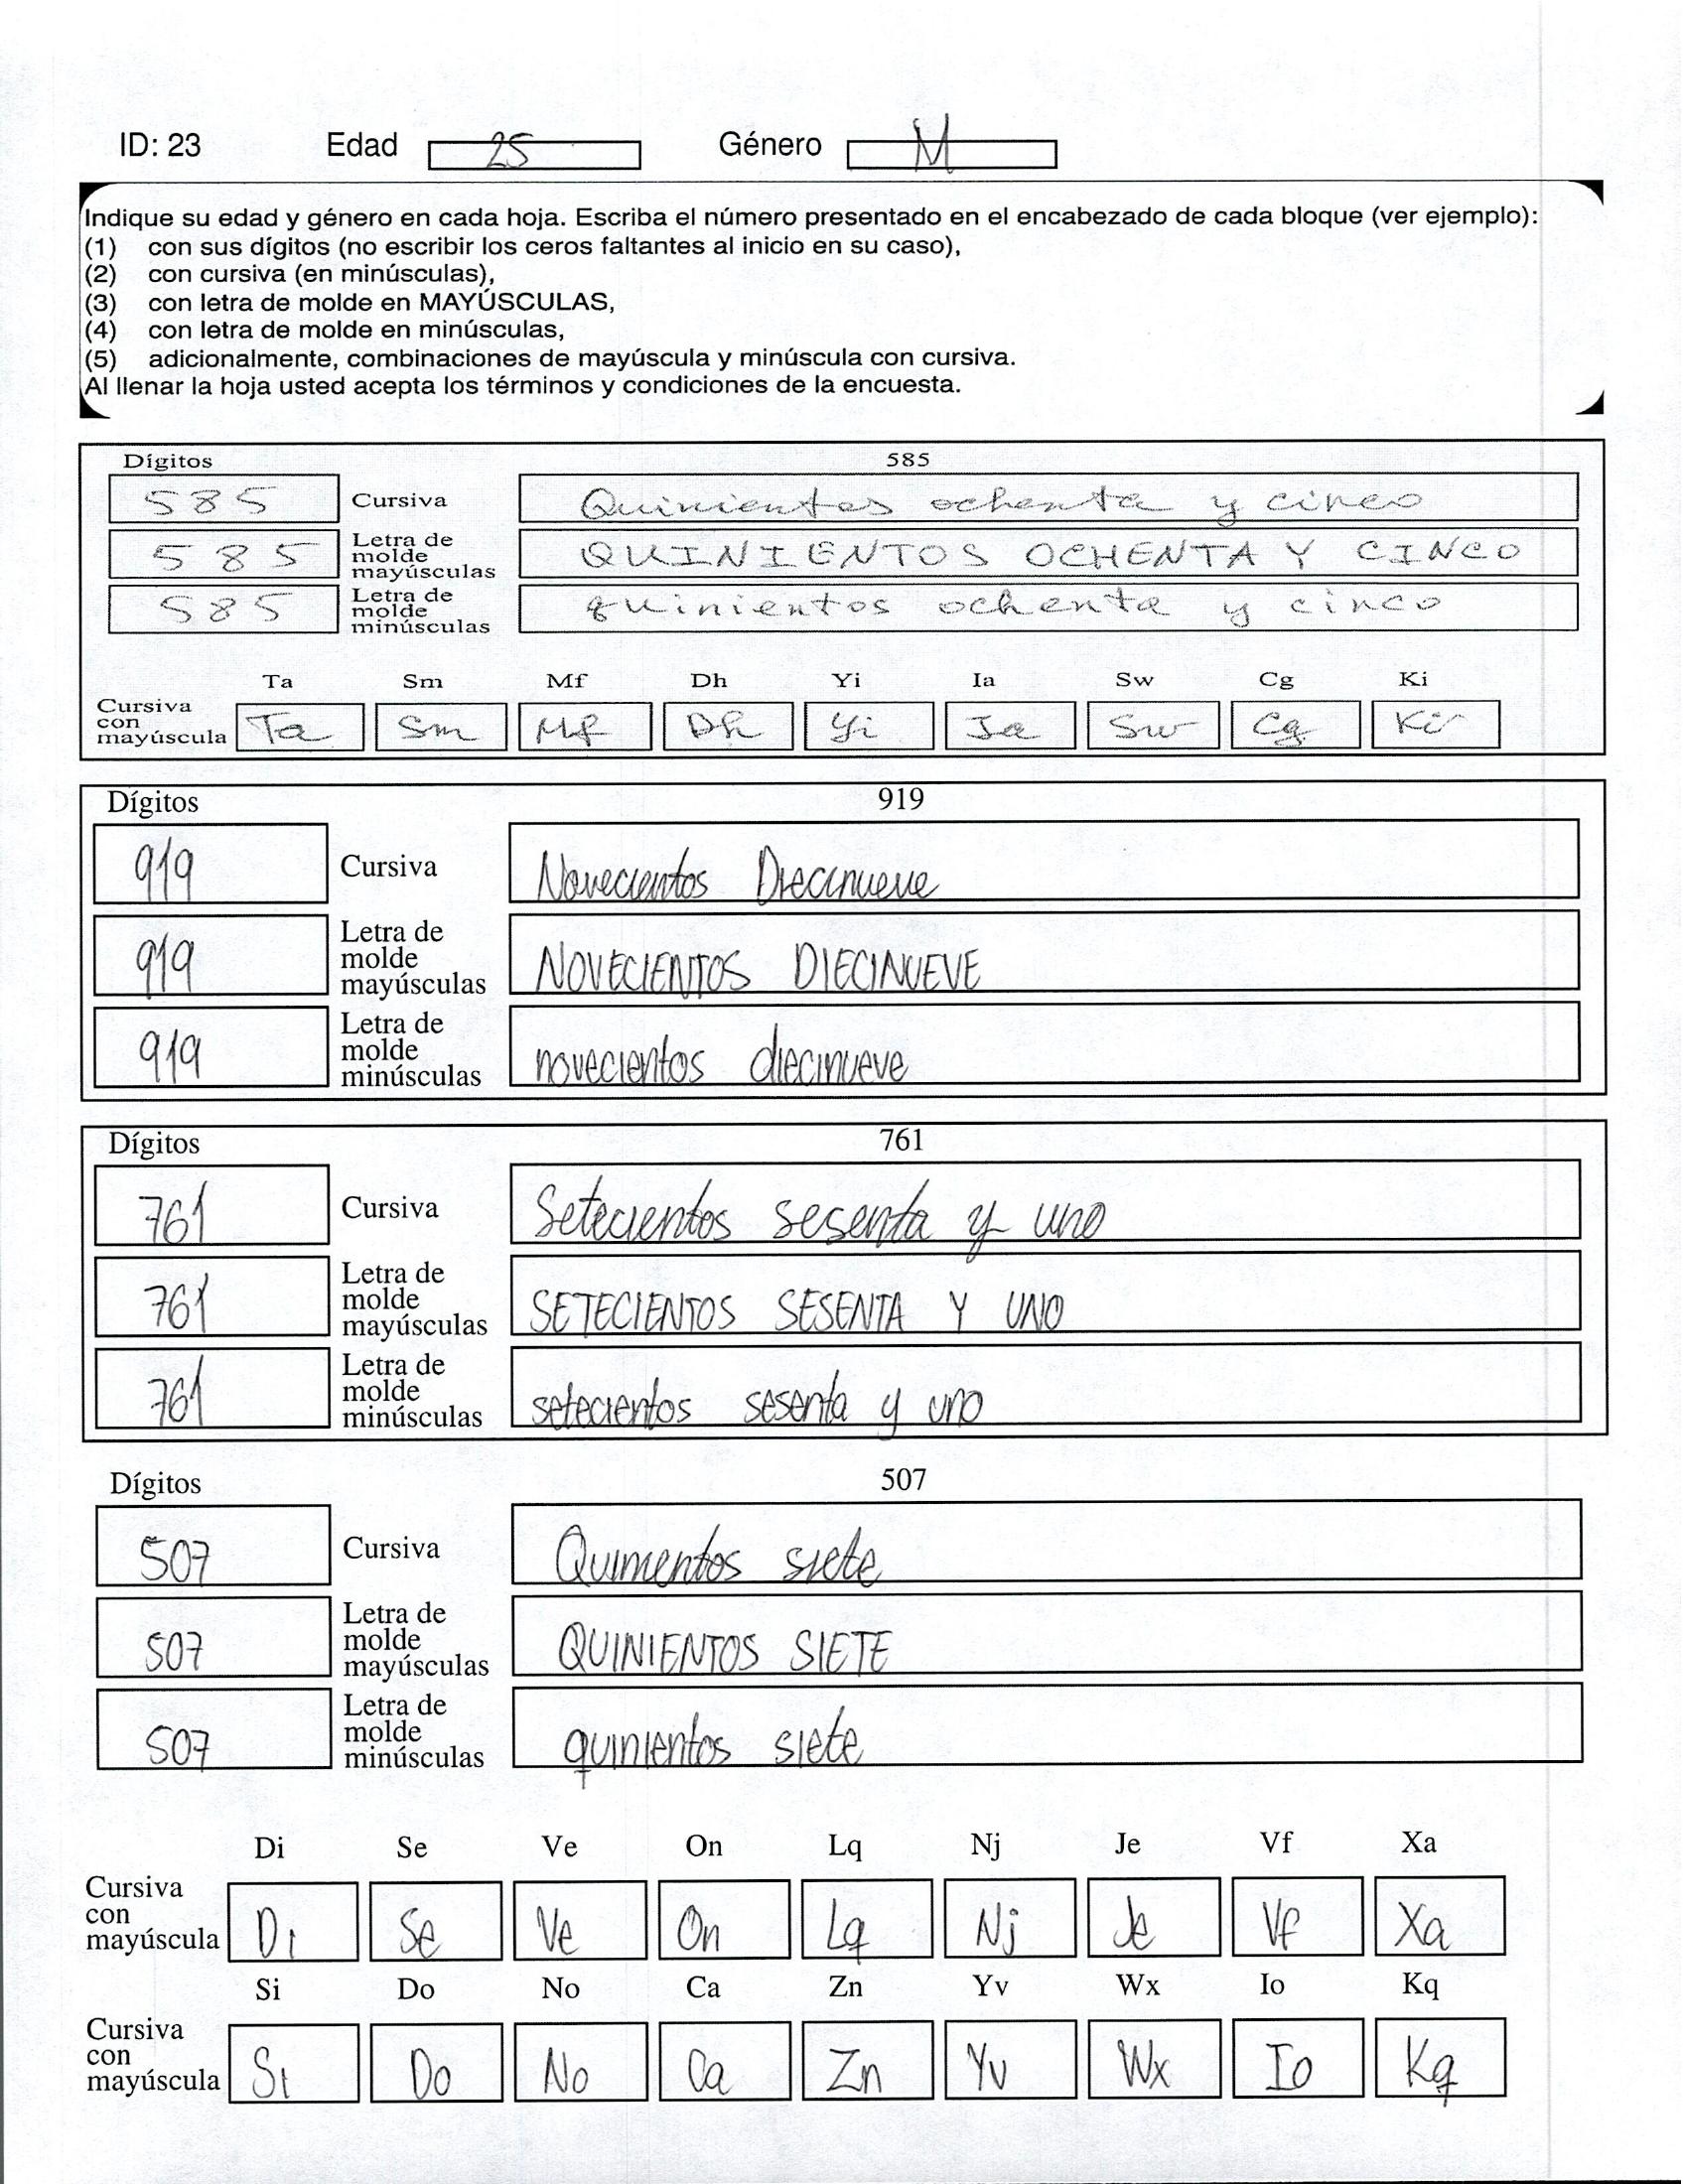 ID: 23 Edad 25 Género M
Indique su edad y género en cada hoja. Escriba el número presentado en el encabezado de cada bloque (ver ejemplo):
(1) con sus dígitos (no escribir los ceros faltantes al inicio en su caso),
(2) con cursiva (en minúsculas),
(3) con letra de molde en MAYÚSCULAS,
(4) con letra de molde en minúsculas,
(5) adicionalmente, combinaciones de mayúscula y minúscula con cursiva.
Al llenar la hoja usted acepta los términos y condiciones de la encuesta.
Dígitos 585
585 Cursiva Quinientos ochenta y cinco
585 Letra de molde mayúsculas QUINIENTOS OCHENTA Y CINCO
585 Letra de molde minúsculas quinientos ochenta y cinco
Ta Sm Mf Dh Yi Ia Sw Cg Ki
Cursiva con mayúscula Ta Sm Mf Dh Yi Ia Sw Cg Ki
Dígitos 919
919 Cursiva Novecientos Diecinueve
919 Letra de molde mayúsculas NOVECIENTOS DIECINUEVE
919 Letra de molde minúsculas novecientos diecinueve
Dígitos 761
761 Cursiva Setecientos sesenta y uno
761 Letra de molde mayúsculas SETECIENTOS SESENTA Y UNO
761 Letra de molde minúsculas setecientos sesenta y uno
Dígitos 507
507 Cursiva Quinientos siete
507 Letra de molde mayúsculas QUINIENTOS SIETE
507 Letra de molde minúsculas quinientos siete
Di Se Ve On Lq Nj Je Vf Xa
Cursiva con mayúscula Di Se Ve On Lq Nj Je Vf Xa
Si Do No Ca Zn Yv Wx Io Kq
Cursiva con mayúscula Si Do No Ca Zn Yv Wx Io Kq